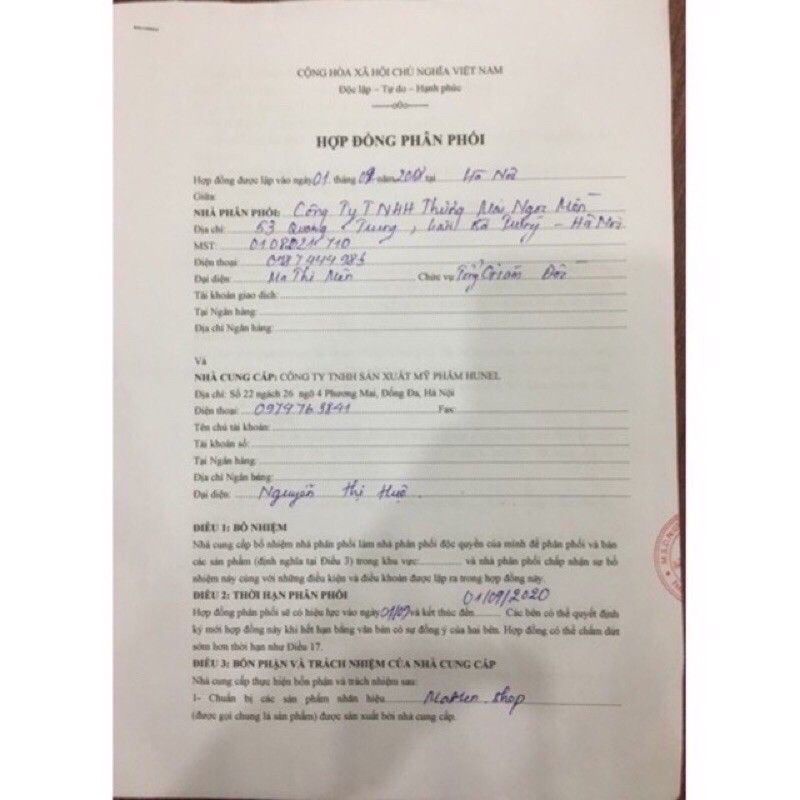 CỘNG HÒA XÃ HỘI CHỦ NGHĨA VIỆT NAM
Độc lập – Tự do – Hạnh phúc
-----o0o-----
HỢP ĐỒNG PHÂN PHỐI
Hợp đồng được lập vào ngày 01 tháng 09 năm tại Hà Nội
Giữa:
NHÀ PHÂN PHỐI: Công Ty TNHH Thương Mại Ngọc Mến
Địa chỉ: 53 Quang Trung, - Hà Nội
MST:
Điện thoại:
Đại diện: Ma Thị Mến Chức vụ: Tổng Giám Đốc
Tài khoản giao dịch:
Tại Ngân hàng:
Địa chỉ Ngân hàng:
Và
NHÀ CUNG CẤP: CÔNG TY TNHH SẢN XUẤT MỸ PHẨM HUNEL
Địa chỉ: Số 22 ngách 26 ngõ 4 Phương Mai, Đống Đa, Hà Nội
Điện thoại: Fax:
Tên chủ tài khoản:
Tài khoản số:
Tại Ngân hàng:
Địa chỉ Ngân hàng:
Đại diện: Nguyễn Thị Huệ
ĐIỀU 1: BỔ NHIỆM
Nhà cung cấp bổ nhiệm nhà phân phối làm nhà phân phối độc quyền của mình để phân phối và bán
các sản phẩm (định nghĩa tại Điều 3) trong khu vực: và nhà phân phối chấp nhận sự bổ
nhiệm này cùng với những điều kiện và điều khoản được lập ra trong hợp đồng này.
ĐIỀU 2: THỜI HẠN PHÂN PHỐI 01/09/2020
Hợp đồng phân phối sẽ có hiệu lực vào ngày 01/09 và kết thúc đến Các bên có thể quyết định
ký mới hợp đồng này khi hết hạn bằng văn bản có sự đồng ý của hai bên. Hợp đồng có thể chấm dứt
sớm hơn thời hạn như Điều 17.
ĐIỀU 3: BỔN PHẬN VÀ TRÁCH NHIỆM CỦA NHÀ CUNG CẤP
Nhà cung cấp thực hiện bổn phận và trách nhiệm sau:
1- Chuẩn bị các sản phẩm nhãn hiệu shop
(được gọi chung là sản phẩm) được sản xuất bởi nhà cung cấp.